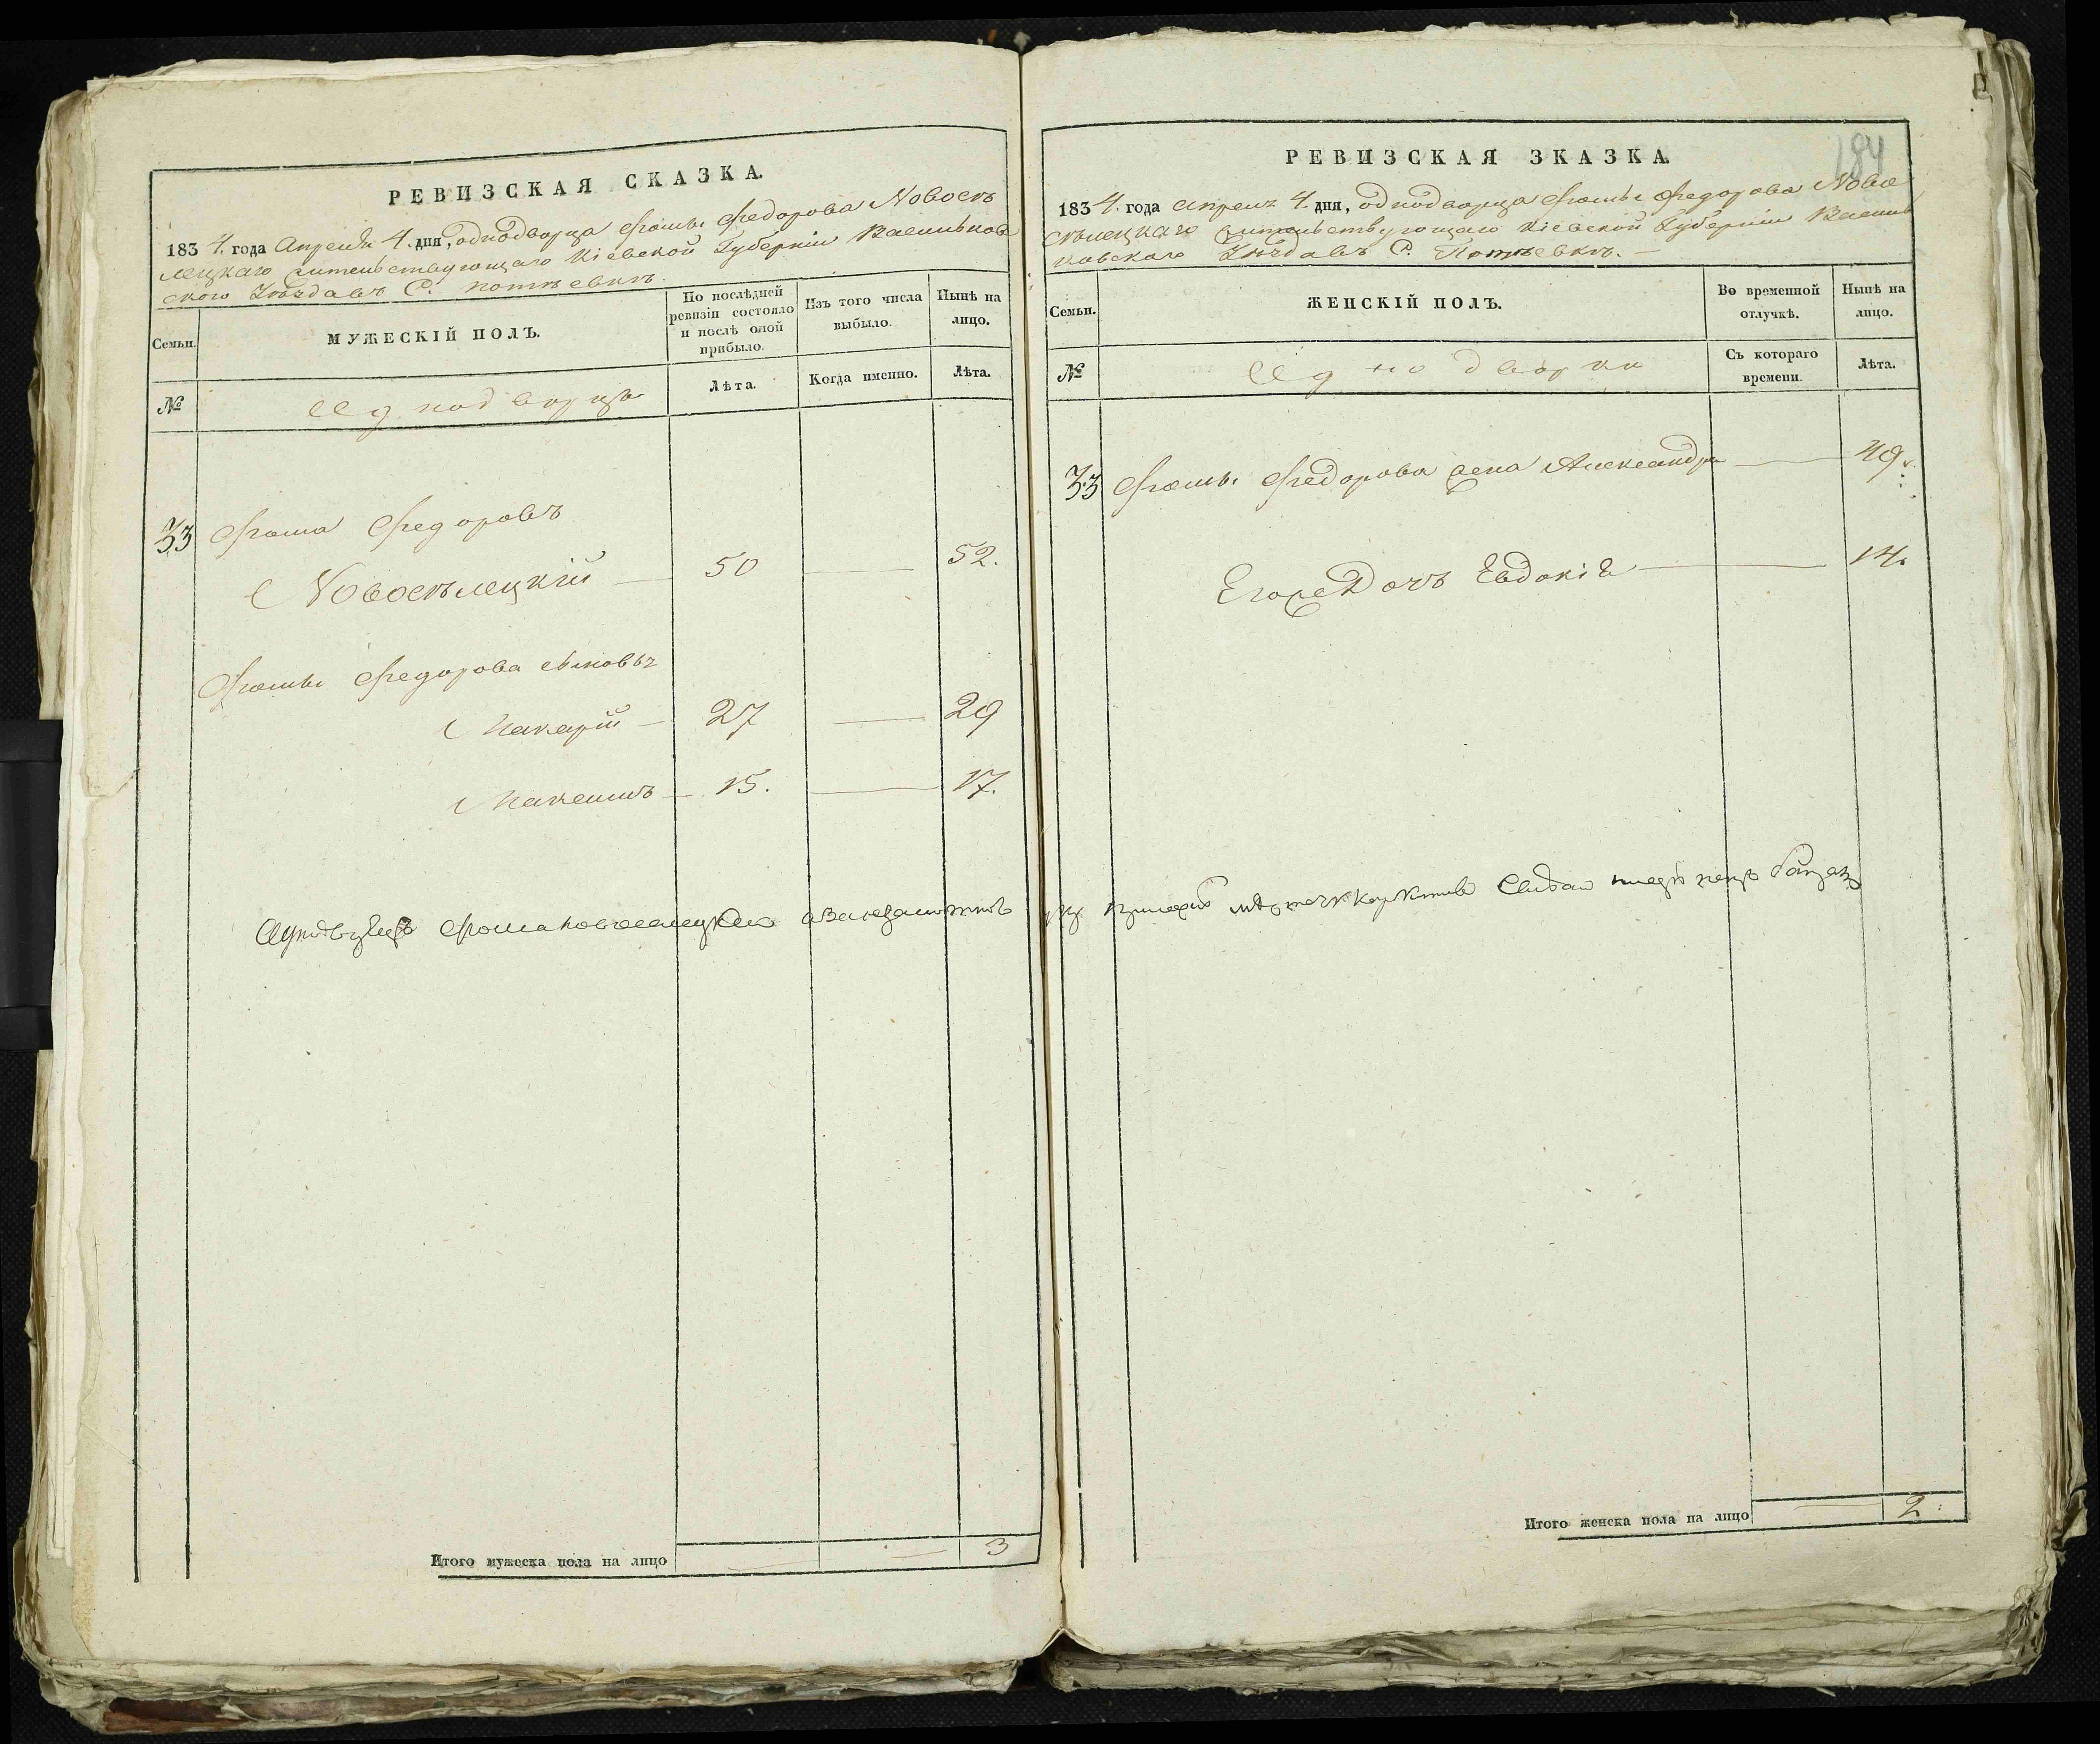 РЕВИЗСКАЯ СКАЗКА.
1834. года Апреля 4. дня, однодворца Фомы Федорова Новосѣ
лецкаго жительствующаго Кіевской Губерніи Васильков
ского Уѣзда въ С. Потѣевкѣ.
Семьи.
МУЖЕСКІЙ ПОЛЪ.
По послѣдней
ревизіи состояло
и послѣ оной
прибыло.
Изъ того числа
выбыло.
Нынѣ на
лицо.
№
Однодворцы
Лѣта.
Когда именно.
Лѣта.
33 Фома Федоровъ
Новосѣлецкій — 50 — 52.
Фомы Федорова сыновья
Макарій — 27 — 29
Максимъ — 15. — 17.
Фома
Итого мужеска пола на лицо — — 3
184
РЕВИЗСКАЯ ЗКАЗКА.
1834. года Апреля 4. дня, однодворца Фомы ФедороваНово
сѣлецкаго жительствующаго Кіевской Губерніи Василь
ковского Уѣзда въ С. Потѣевкѣ. —
Семьи.
ЖЕНСКІЙ ПОЛЪ.
Во временной
отлучкѣ.
Нынѣ на
лицо.
№
Однодворки
Съ котораго
времени.
Лѣта.
33 Фомы Федорова жена Александра — 49.
Его же Дочь Евдокія — 14.
Итого женска пола на лицо — 2